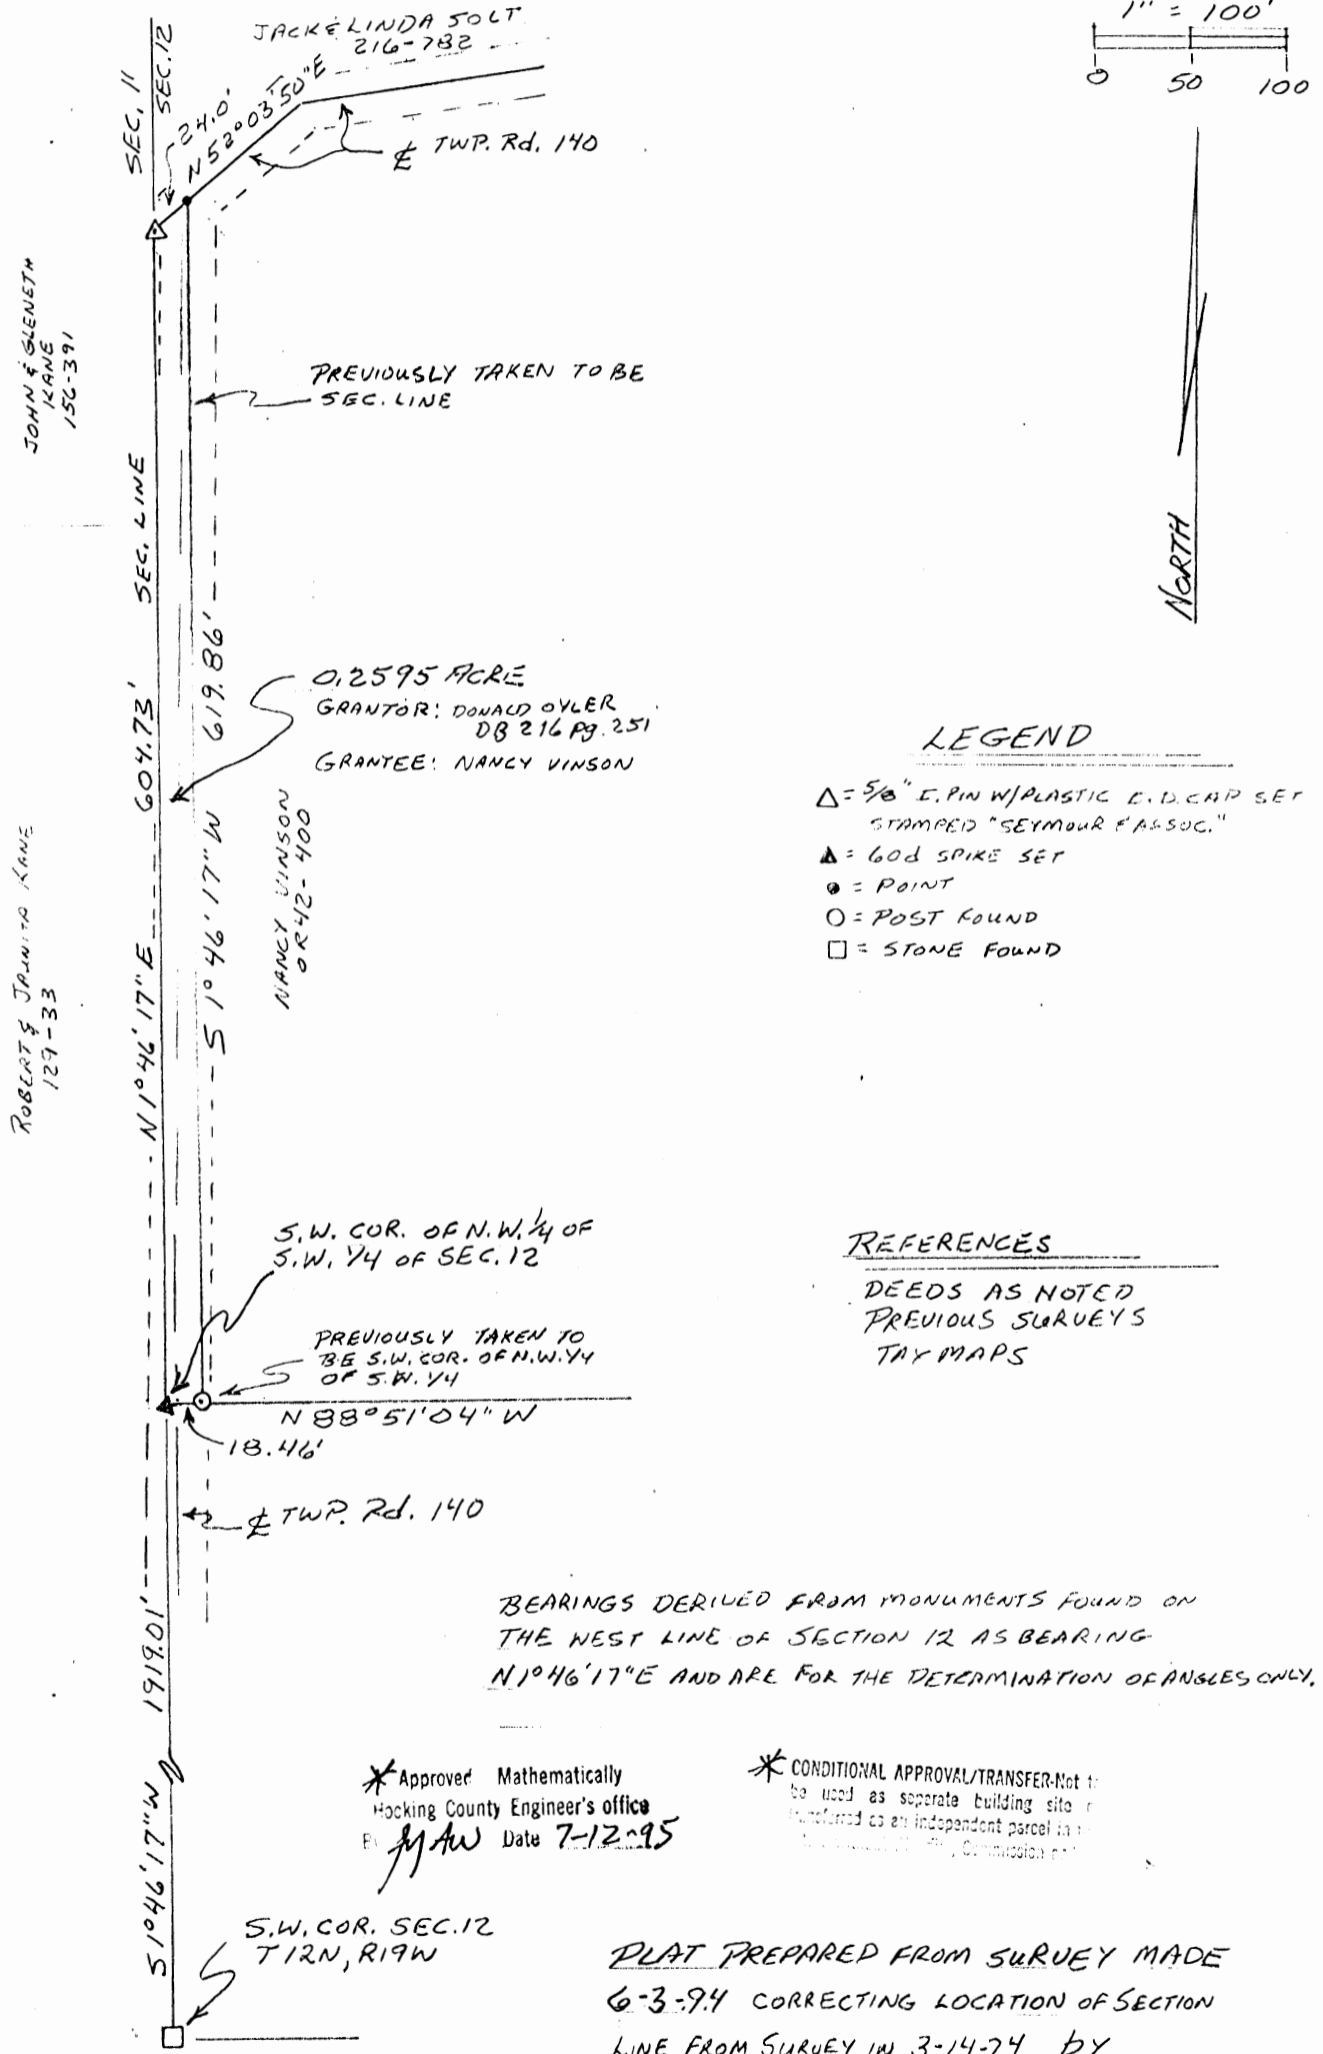 1" = 100'
0 50 100
JACK & LINDA SOLT
216-782
SEC. 11
SEC. 12
24.0'
N 52°03'50" E
℄ TWP. Rd. 140
JOHN & GLENETH
KANE
156-391
PREVIOUSLY TAKEN TO BE
SEC. LINE
NORTH
SEC. LINE
604.73'
N 1°46'17" E
619.86'
S 1°46'17" W
0.2595 ACRE
GRANTOR: DONALD OYLER
DB 216 pg. 251
GRANTEE: NANCY VINSON
NANCY VINSON
OR 42-400
ROBERT & JAUNITA KANE
129-33
LEGEND
△ = 5/8" I. PIN W/PLASTIC I.D. CAP SET
STAMPED "SEYMOUR & ASSOC."
▲ = 60d SPIKE SET
● = POINT
○ = POST FOUND
□ = STONE FOUND
S.W. COR. OF N.W. 1/4 OF
S.W. 1/4 OF SEC. 12
PREVIOUSLY TAKEN TO
BE S.W. COR. OF N.W. 1/4
OF S.W. 1/4
N 88°51'04" W
18.46'
℄ TWP. Rd. 140
REFERENCES
DEEDS AS NOTED
PREVIOUS SURVEYS
TAX MAPS
1919.01'
S 1°46'17" W
BEARINGS DERIVED FROM MONUMENTS FOUND ON
THE WEST LINE OF SECTION 12 AS BEARING
N 1°46'17" E AND ARE FOR THE DETERMINATION OF ANGLES ONLY.
Approved Mathematically
Hocking County Engineer's office
By MAW Date 7-12-95
CONDITIONAL APPROVAL/TRANSFER-Not
be used as separate building site
transferred as an independent parcel in
Commission
S.W. COR. SEC. 12
T12N, R19W
PLAT PREPARED FROM SURVEY MADE
6-3-94 CORRECTING LOCATION OF SECTION
LINE FROM SURVEY IN 3-14-74 by